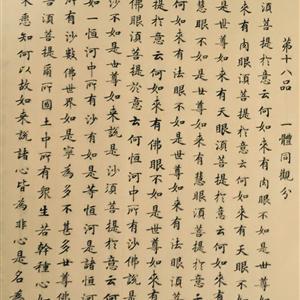 第十八品　一體同觀分
須菩提於意云何如來有肉眼不如是世尊
如來有肉眼須菩提於意云何如來有天眼不如
是世尊如來有天眼須菩提於意云何如來有
慧眼不如是世尊如來有慧眼須菩提於意云
何如來有法眼不如是世尊如來有法眼須菩
提於意云何如來有佛眼不如是世尊如來有
佛眼須菩提於意云何如恒河中所有沙佛說是
沙不如是世尊如來說是沙須菩提於意云何
如一恒河中所有沙有如是等恒河是諸恒河
所有沙數佛世界如是寧為多不甚多世尊佛
告須菩提爾所國土中所有眾生若干種心如
來悉知何以故如來說諸心皆為非心是名為